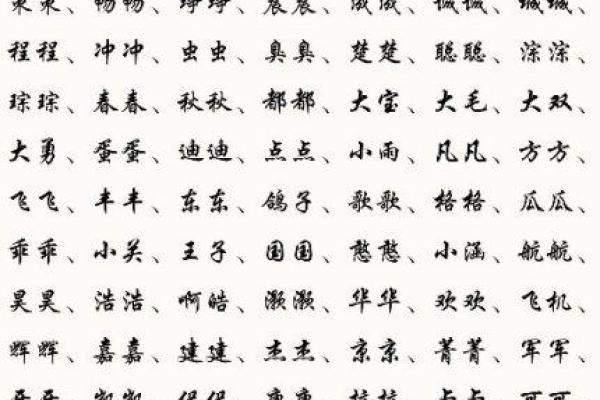 畅畅、诚诚、城城、
程程、冲冲、虫虫、臭臭、楚楚、聪聪、淙淙、
琮琮、春春、秋秋、都都、大宝、大毛、大双、
大勇、蛋蛋、迪迪、点点、小雨、凡凡、方方、
飞飞、丰丰、东东、鸽子、歌歌、格格、瓜瓜、
乖乖、小关、王子、国国、憨憨、小涵、航航、
昊昊、浩浩、啊皓、灏灏、华华、欢欢、飞机、
辉辉、嘉嘉、建建、杰杰、京京、菁菁、军军、
凯凯、可可、